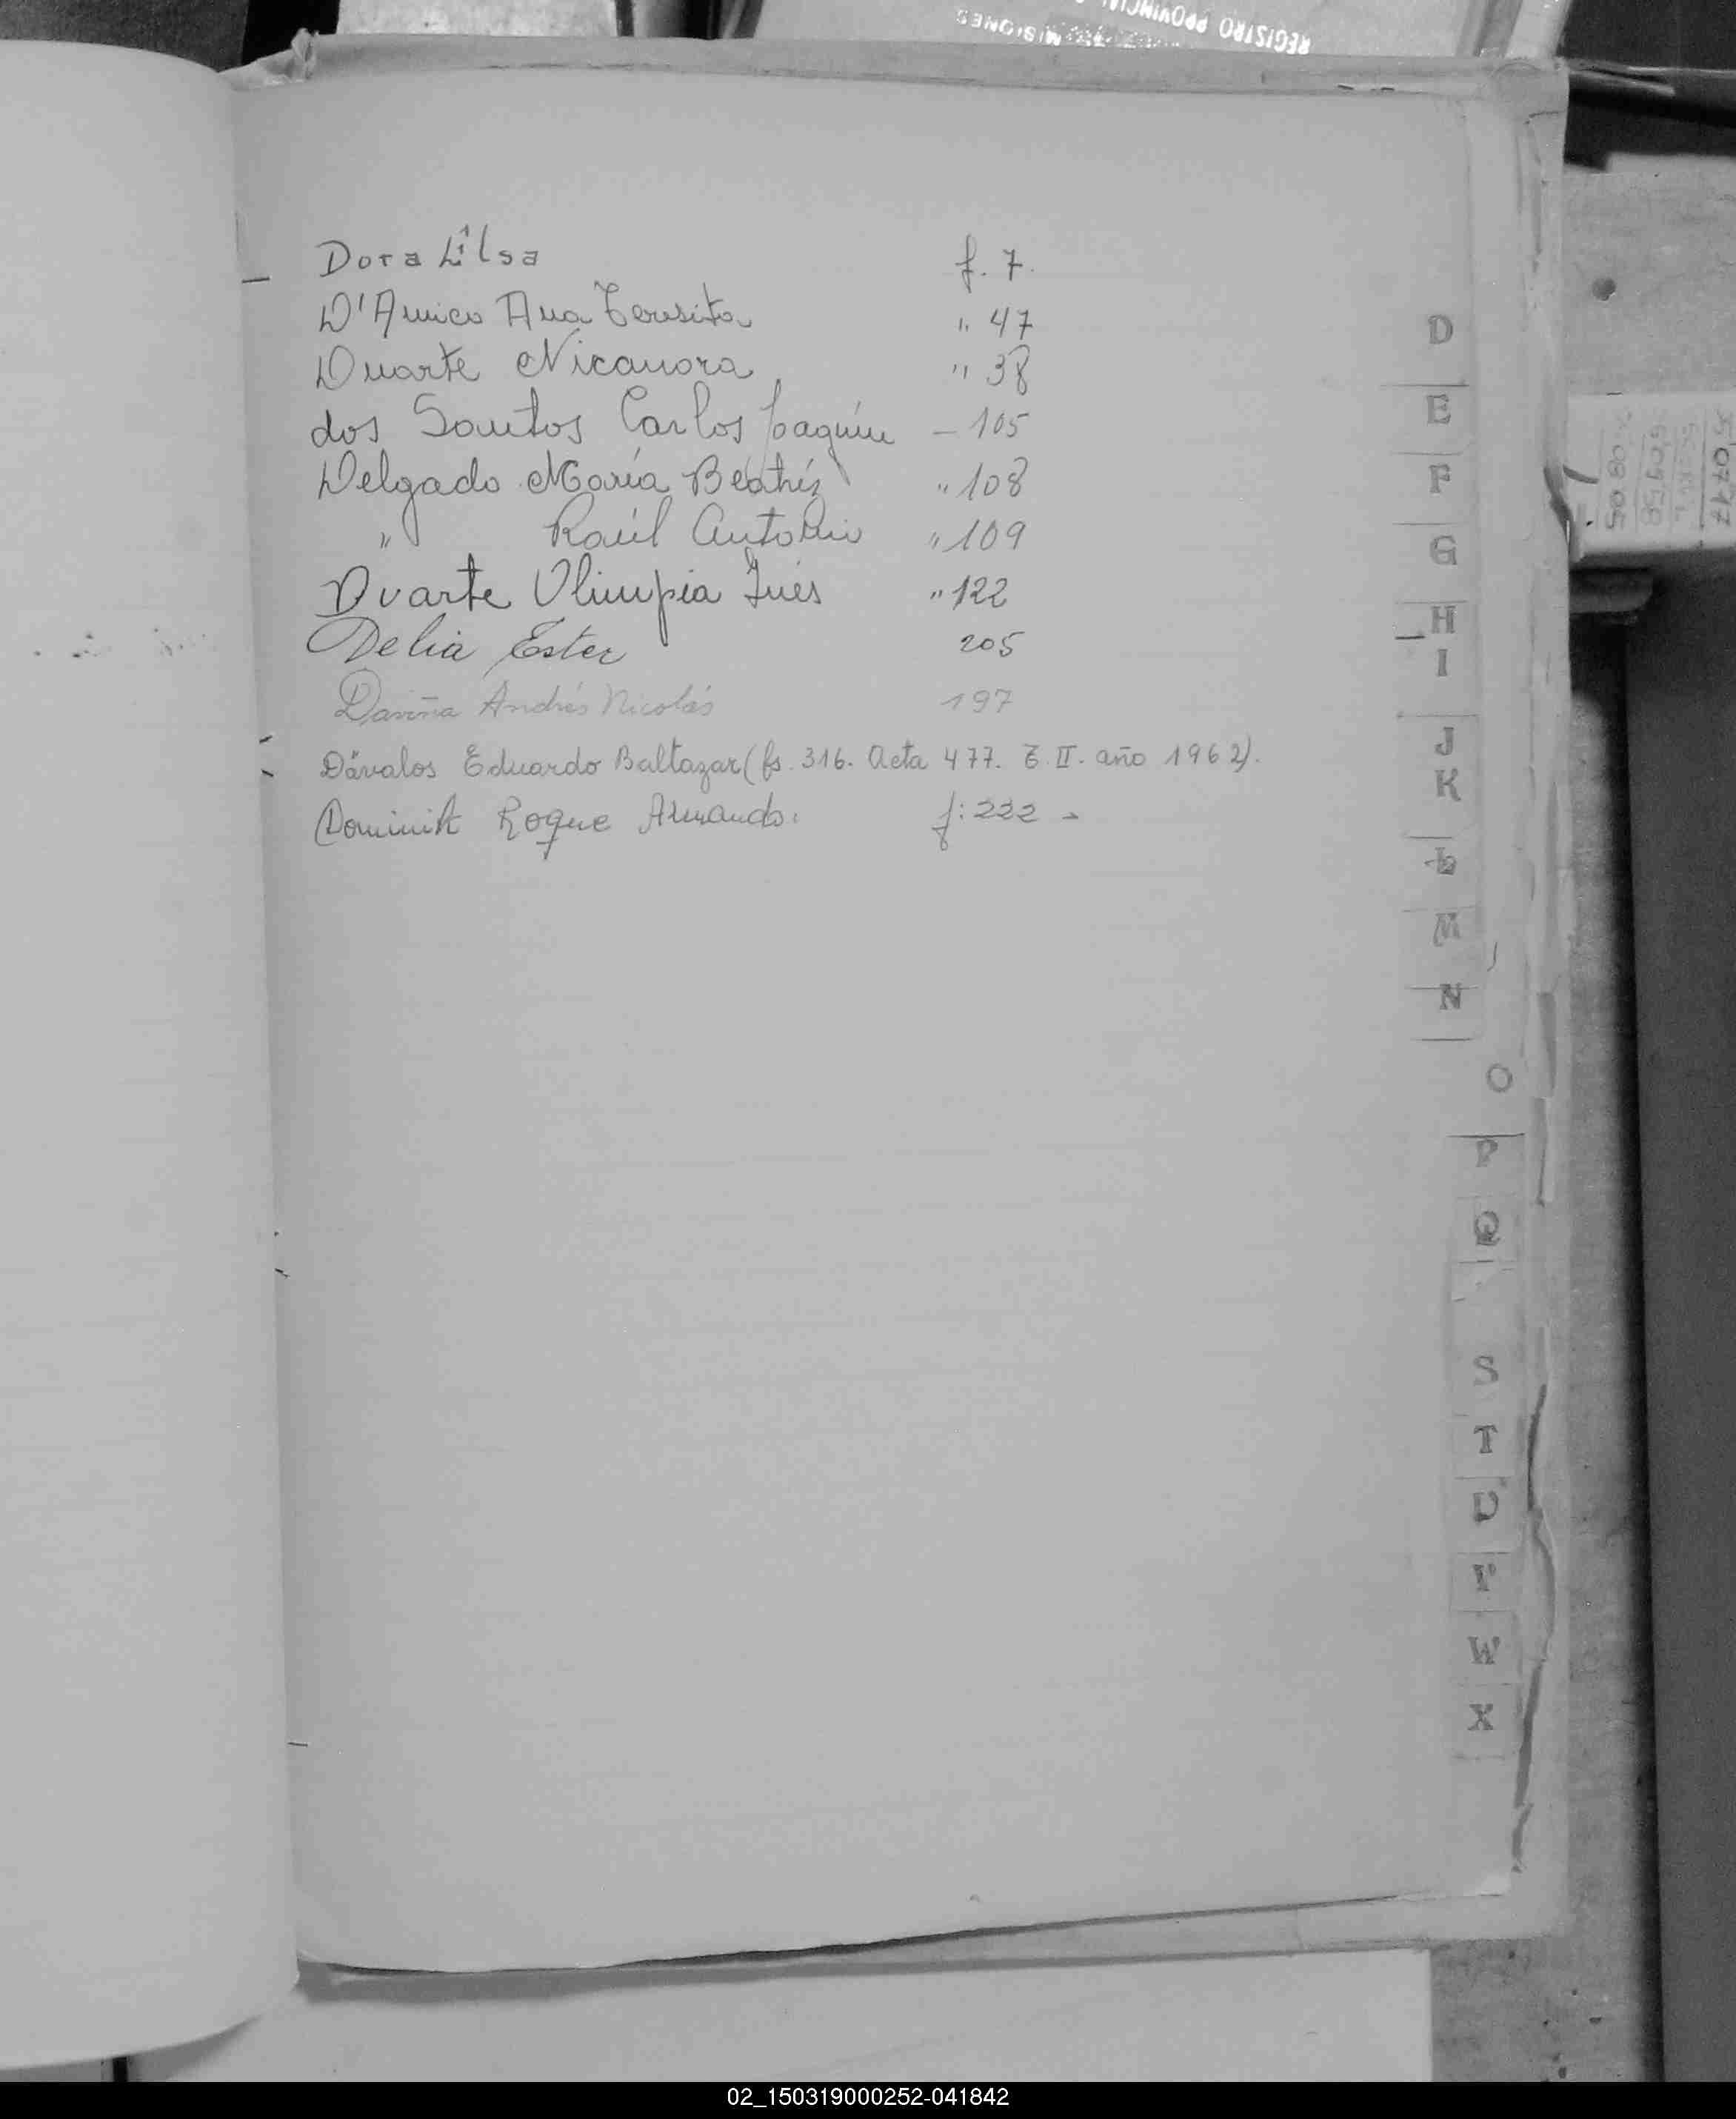 REGISTRO PROVINCIAL
MISIONES
Dora Lilsa f. 7.
D'Amico Ana Teresita " 47
Duarte Nicanora " 38
dos Santos Carlos Joaquín - 105
Delgado María Beatríz " 108
" Raúl Antonio " 109
Duarte Olimpia Inés " 122
Delia Ester 205
Daviña Andrés Nicolás 197
Dávalos Eduardo Baltazar (fs. 316. Acta 477. T. II. año 1962).
Dominik Roque Armando. f: 222 -
D
E
F
G
H
I
J
K
L
M
N
O
P
Q
S
T
U
V
W
X
02_150319000252-041842